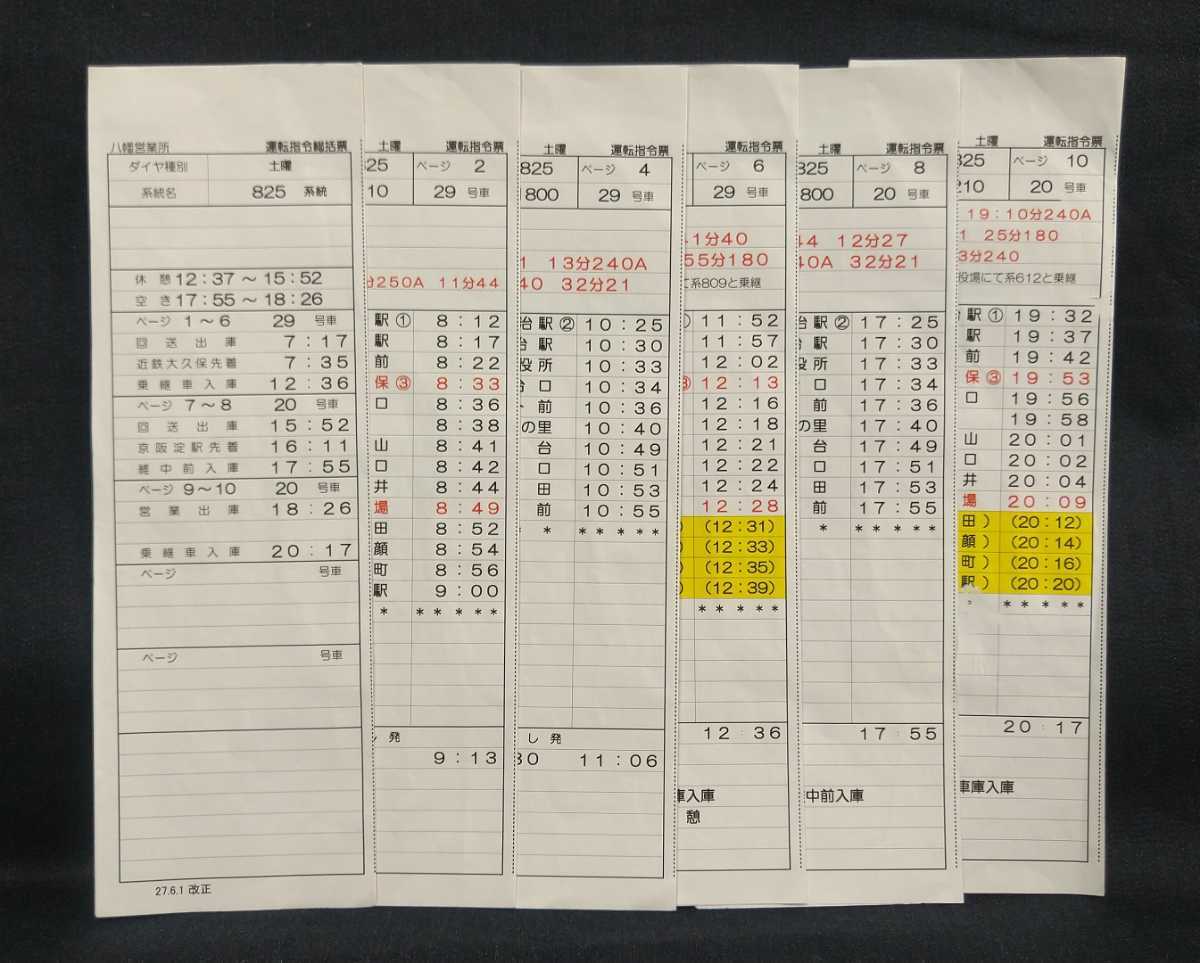 八幡営業所 運転指令総括票
ダイヤ種別 土曜
系統名 825 系統
休憩 12:37～15:52
空き 17:55～18:26
ページ 1～6 29 号車
回送出庫 7:17
近鉄大久保先着 7:35
乗継車入庫 12:36
ページ 7～8 20 号車
回送出庫 15:52
京阪淀駅先着 16:11
中前入庫 17:55
ページ 9～10 20 号車
営業出庫 18:26
乗継車入庫 20:17
ページ 号車
ページ 号車
27.6.1 改正
土曜 運転指令票
825 ページ 2
10 29 号車
分250A 11分44
駅① 8:12
駅 8:17
前 8:22
保③ 8:33
口 8:36
8:38
山 8:41
口 8:42
井 8:44
場 8:49
田 8:52
顔 8:54
町 8:56
駅 9:00
* * * * * *
発
9:13
土曜 運転指令票
825 ページ 4
800 29 号車
1 13分240A
40 32分21
台駅② 10:25
台駅 10:30
役所 10:33
台口 10:34
ト前 10:36
の里 10:40
台 10:49
口 10:51
田 10:53
前 10:55
* * * * * * *
し発
30 11:06
運転指令票
ページ 6
29 号車
41分40
55分180
て系809と乗継
11:52
11:57
12:02
③ 12:13
12:16
12:18
12:21
12:22
12:24
12:28
) (12:31)
) (12:33)
) (12:35)
) (12:39)
* * * * *
12:36
車入庫
憩
土曜 運転指令票
825 ページ 8
800 20 号車
44 12分27
40A 32分21
台駅② 17:25
台駅 17:30
役所 17:33
口 17:34
前 17:36
の里 17:40
台 17:49
口 17:51
田 17:53
前 17:55
* * * * * *
17:55
中前入庫
土曜 運転指令票
825 ページ 10
210 20 号車
19:10分240A
1 25分180
3分240
役場にて系612と乗継
台駅① 19:32
駅 19:37
前 19:42
保③ 19:53
口 19:56
19:58
山 20:01
口 20:02
井 20:04
場 20:09
田) (20:12)
顔) (20:14)
町) (20:16)
駅) (20:20)
* * * * *
20:17
車庫入庫